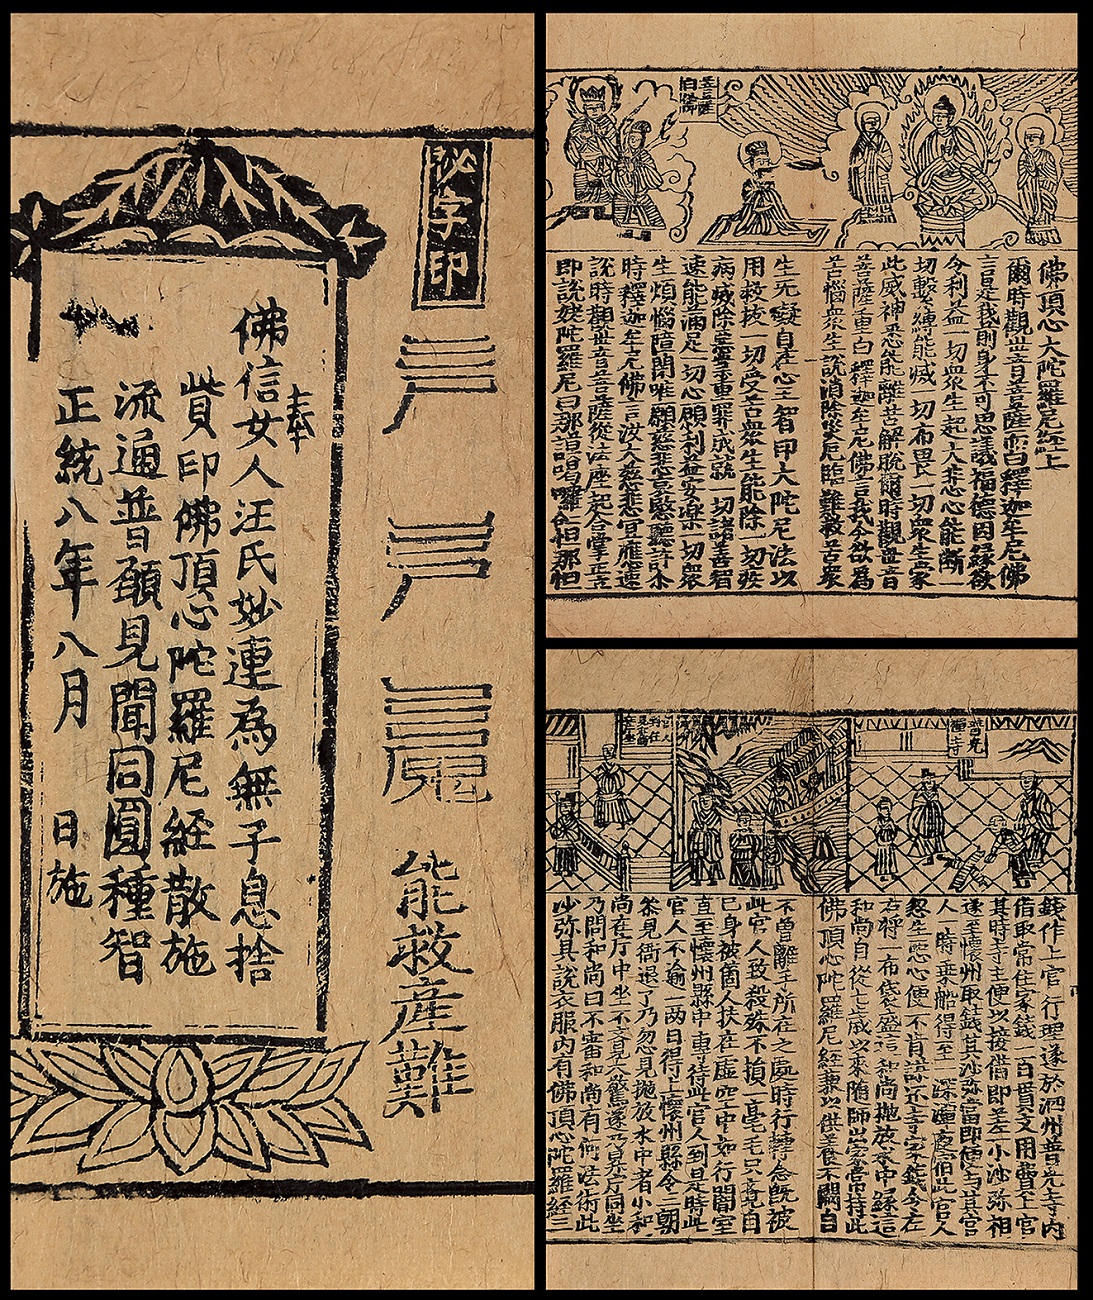 祕字印
能救產難
奉
佛信女人汪氏妙連為無子息捨
貲印佛頂心陀羅尼經散施
流通普願見聞同圓種智
正統八年八月 日施
菩薩
白佛
佛頂心大陀羅尼經上
爾時觀世音菩薩而白釋迦牟尼佛
言是我前身不可思議福德因緣欲
令利益一切衆生起大悲心能斷一
切繫縛能滅一切布畏一切衆生蒙
此威神悉能離苦解脫爾時觀世音
菩薩重白釋迦牟尼佛言我今欲為
苦惱衆生說消除災厄臨難救苦衆
生无礙自在心王智甲大陀尼法以
用救拔一切受苦衆生能除一切疾
病滅除惡業重罪成就一切諸善智
速能滿足一切心願利益安樂一切衆
生煩惱障閉唯願慈悲哀愍聽許本
時釋迦牟尼佛言汝大慈悲宜應速
說時觀世音菩薩從法座起合掌正立
即說姥陀羅尼曰那謨喝囉怛那怛
普光
禪寺
錢作上官行理遂於泗州普光寺内
借取常住家錢一百貫文用費上官
其時寺主便以接借即差一小沙弥相
逐至懷州取錢其沙弥當即便与其官
人一時乗船得至一深潭夜宿此官人
忽生惡心便不肯謝還寺家錢令左
右将一布袋盛這和尚拋放水中緣這
和尚自從七歲以来随師出家常持此
佛頂心陀羅尼經兼以供養不闕自
不曾離手所在之處時行轉念既被
此官人致殺殊不損一毫毛只覺自
己身被箇人扶在虛空中如行闇室
直至懷州縣中專待此官人到且是時此
官人不逾一两日得上懷州縣令三朝
叅見衙退了乃忽見拋放水中者小和
尚在厅中坐不覺大驚遂乃昇厅同坐
乃問和尚曰不審和尚有何法術此
沙弥具說衣服内有佛頂心陀羅經三